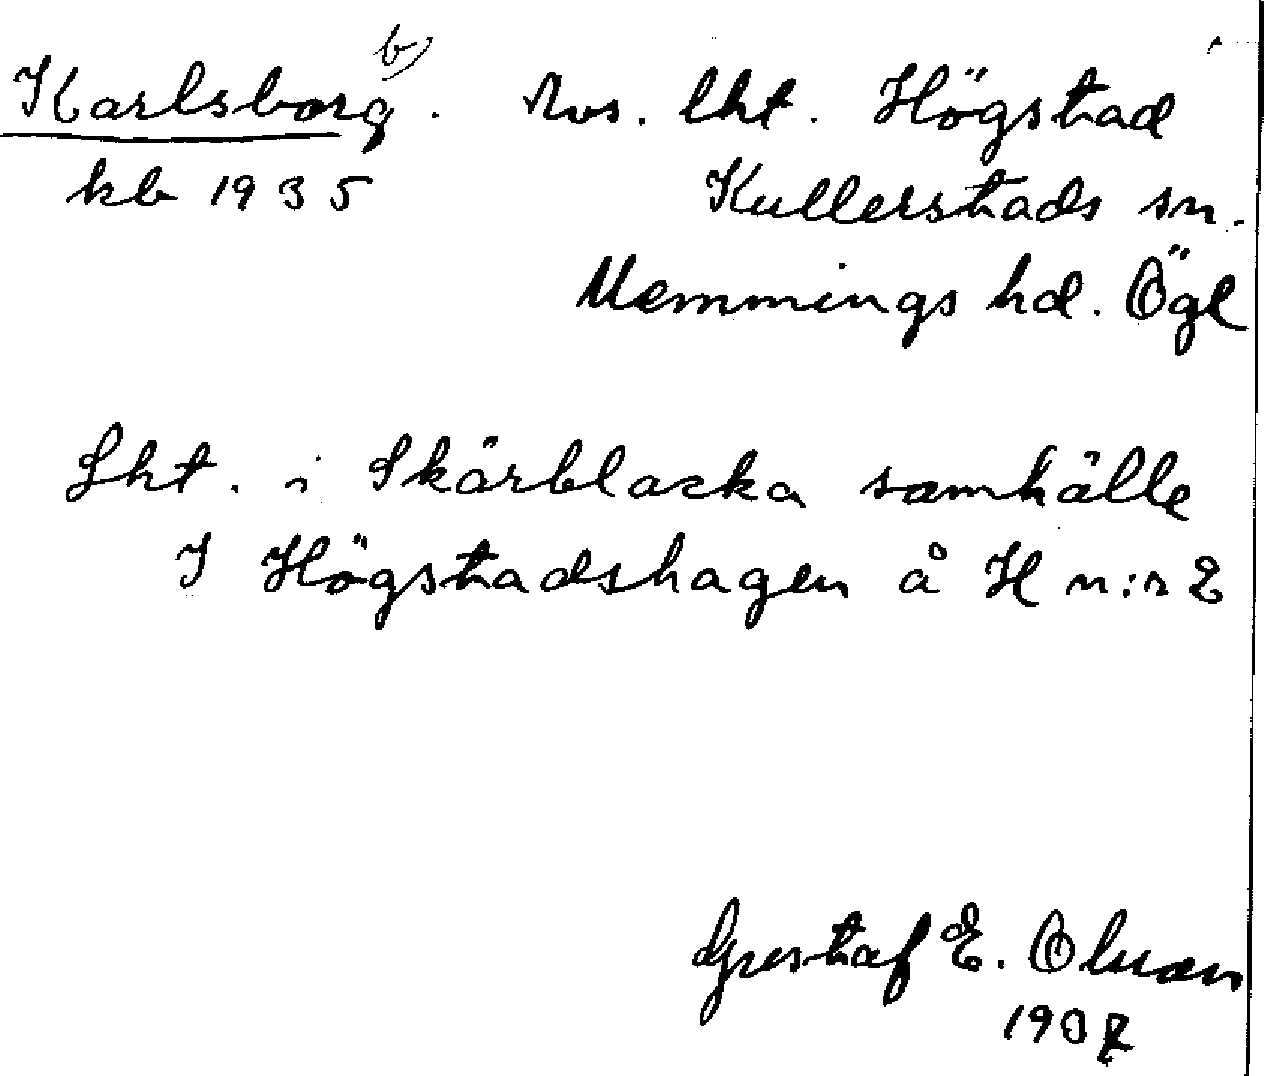 Karlsborg b). Avs. lht. Högstad
kb 1935 Kullerstads sn.
Memmings hd. Ögl
Lht. i Skärblacka samhälle
I Högstadshagen å H n:r 2
Gustaf E. Olsson
190